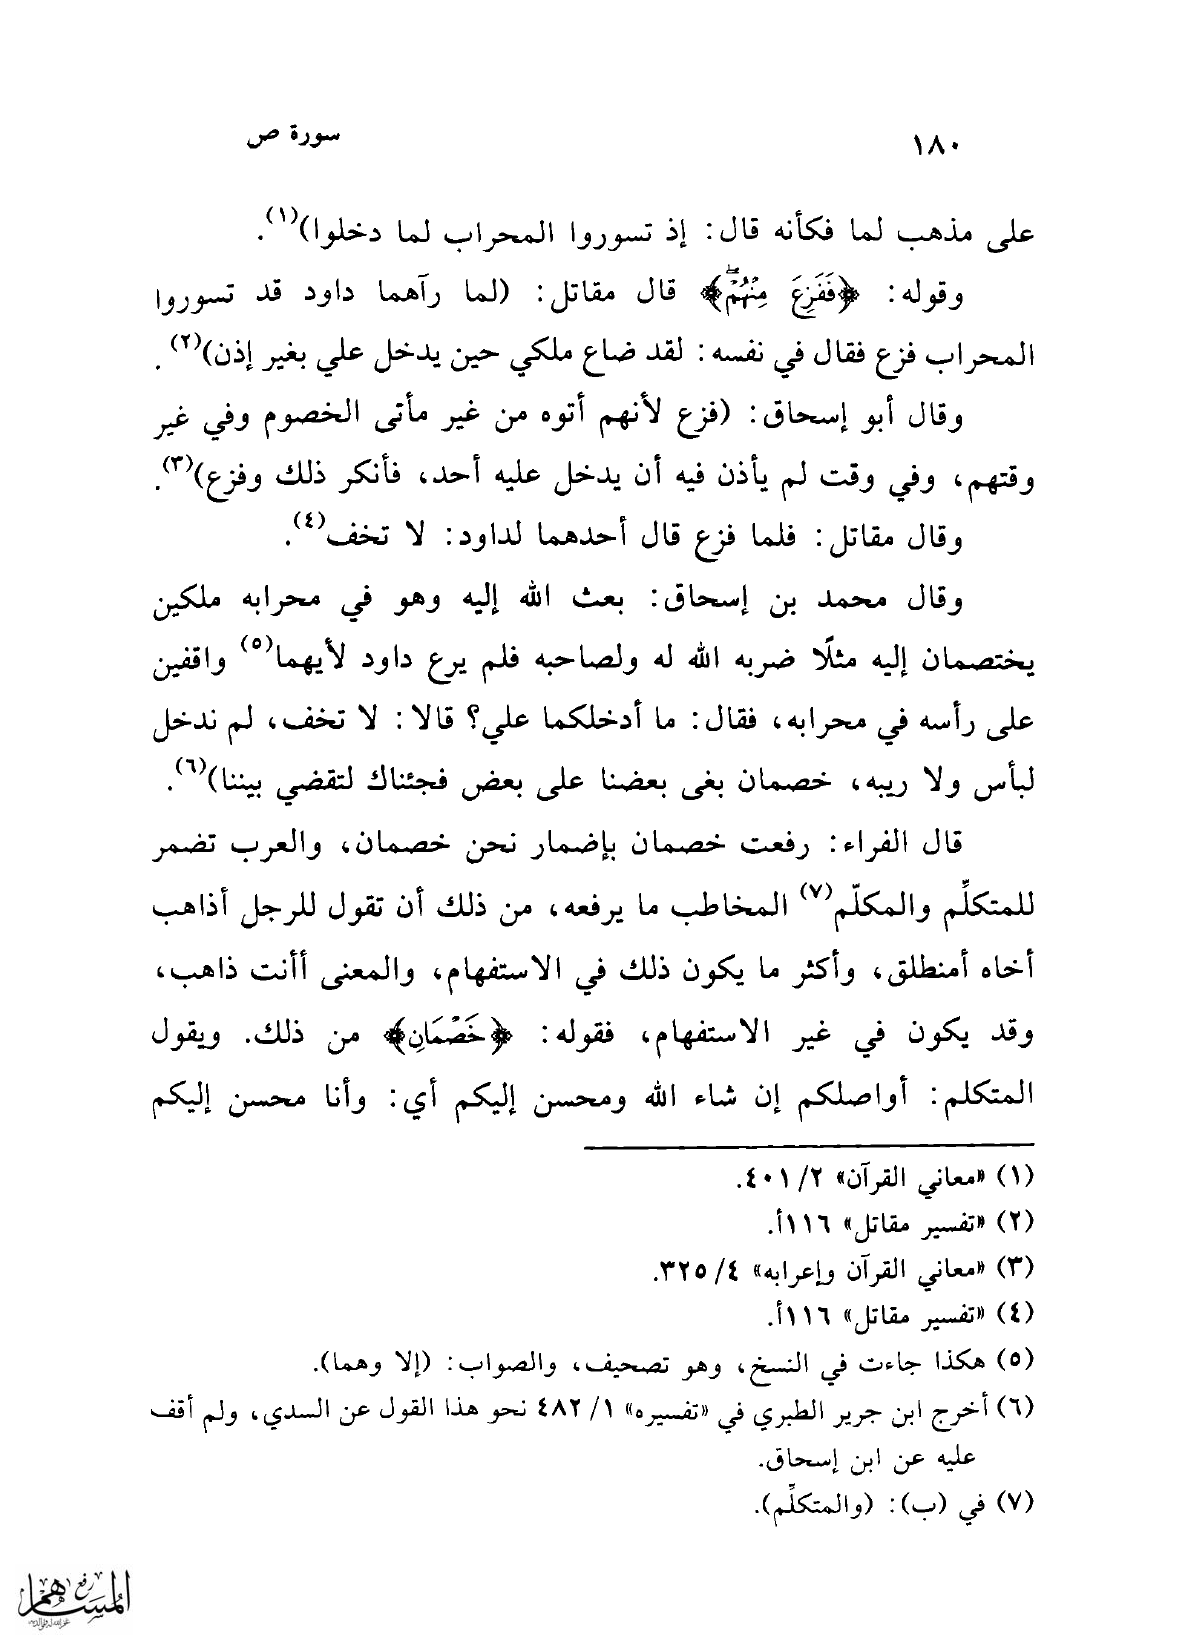 ١٨٠ سورة ص
على مذهب لما فكأنه قال: إذ تسوروا المحراب لما دخلوا)(١).
وقوله: ﴿فَفَزِعَ مِنْهُمْ﴾ قال مقاتل: (لما رآهما داود قد تسوروا
المحراب فزع فقال في نفسه: لقد ضاع ملكي حين يدخل علي بغير إذن)(٢).
وقال أبو إسحاق: (فزع لأنهم أتوه من غير مأتى الخصوم وفي غير
وقتهم، وفي وقت لم يأذن فيه أن يدخل عليه أحد، فأنكر ذلك وفزع)(٣).
وقال مقاتل: فلما فزع قال أحدهما لداود: لا تخف(٤).
وقال محمد بن إسحاق: بعث الله إليه وهو في محرابه ملكين
يختصمان إليه مثلًا ضربه الله له ولصاحبه فلم يرع داود لأيهما(٥) واقفين
على رأسه في محرابه، فقال: ما أدخلكما علي؟ قالا: لا تخف، لم ندخل
لبأس ولا ريبه، خصمان بغى بعضنا على بعض فجئناك لتقضي بيننا)(٦).
قال الفراء: رفعت خصمان بإضمار نحن خصمان، والعرب تضمر
للمتكلِّم والمكلّم(٧) المخاطب ما يرفعه، من ذلك أن تقول للرجل أذاهب
أخاه أمنطلق، وأكثر ما يكون ذلك في الاستفهام، والمعنى أأنت ذاهب،
وقد يكون في غير الاستفهام، فقوله: ﴿خَصْمَانِ﴾ من ذلك. ويقول
المتكلم: أواصلكم إن شاء الله ومحسن إليكم أي: وأنا محسن إليكم
(١) «معاني القرآن» ٢/ ٤٠١.
(٢) «تفسير مقاتل» ١١٦أ.
(٣) «معاني القرآن وإعرابه» ٤/ ٣٢٥.
(٤) «تفسير مقاتل» ١١٦أ.
(٥) هكذا جاءت في النسخ، وهو تصحيف، والصواب: (إلا وهما).
(٦) أخرج ابن جرير الطبري في «تفسيره» ١/ ٤٨٢ نحو هذا القول عن السدي، ولم أقف
عليه عن ابن إسحاق.
(٧) في (ب): (والمتكلِّم).
رفع
المساهم